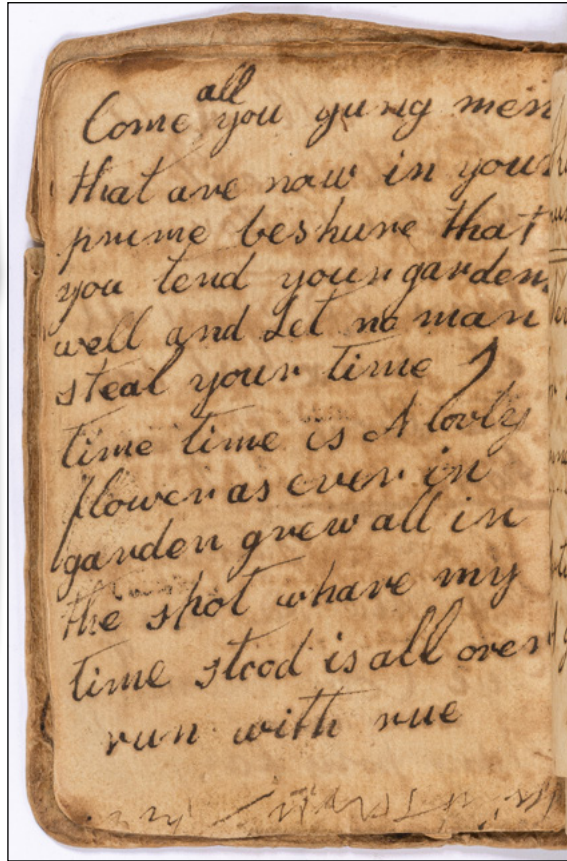 Come all you yung men
that are now in your
prime beshure that
you tend your garden
well and Let no man
steal your time
time time is A lovly
flower as ever in
garden grew all in
the spot whare my
time stood is all over
run with rue